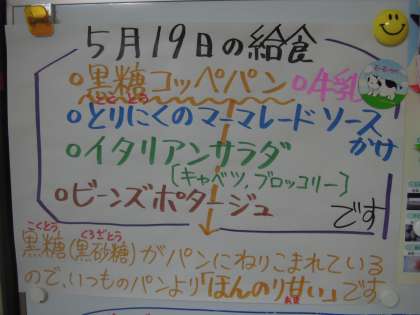 5月19日の給食
○黒糖コッペパン ○牛乳
こくとう
○とりにくのマーマレードソース
かけ
○イタリアンサラダ
〔キャベツ、ブロッコリー〕
○ビーンズポタージュ
です
こくとう くろざとう
黒糖(黒砂糖)がパンにねりこまれている
ので、いつものパンより「ほんのり甘い」です